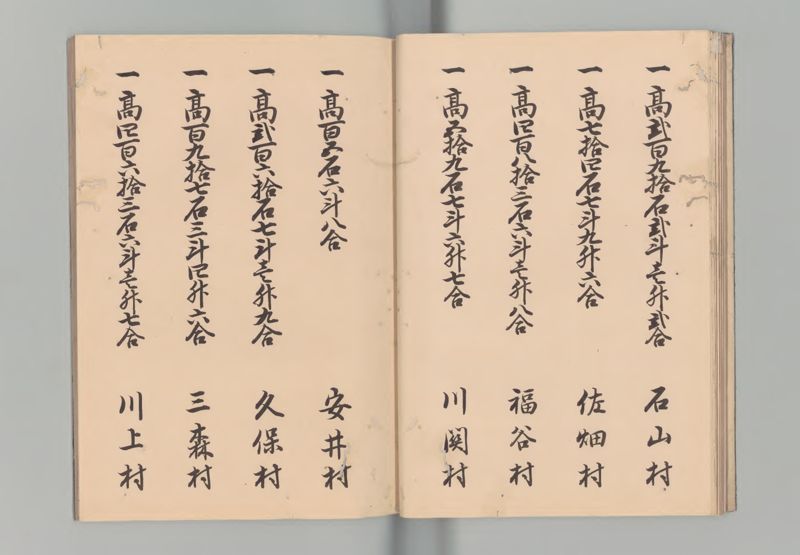 一高弐百九拾石弐斗壱升弐合 石山村
一高七拾四石七斗九升六合 佐畑村
一高四百八拾三石六斗壱升八合 福谷村
一高五拾九石七斗六升七合 川関村
一高百五石六斗八合 安井村
一高弐百六拾石七斗壱升九合 久保村
一高百九拾七石三斗四升六合 三森村
一高四百六拾三石六斗壱升七合 川上村